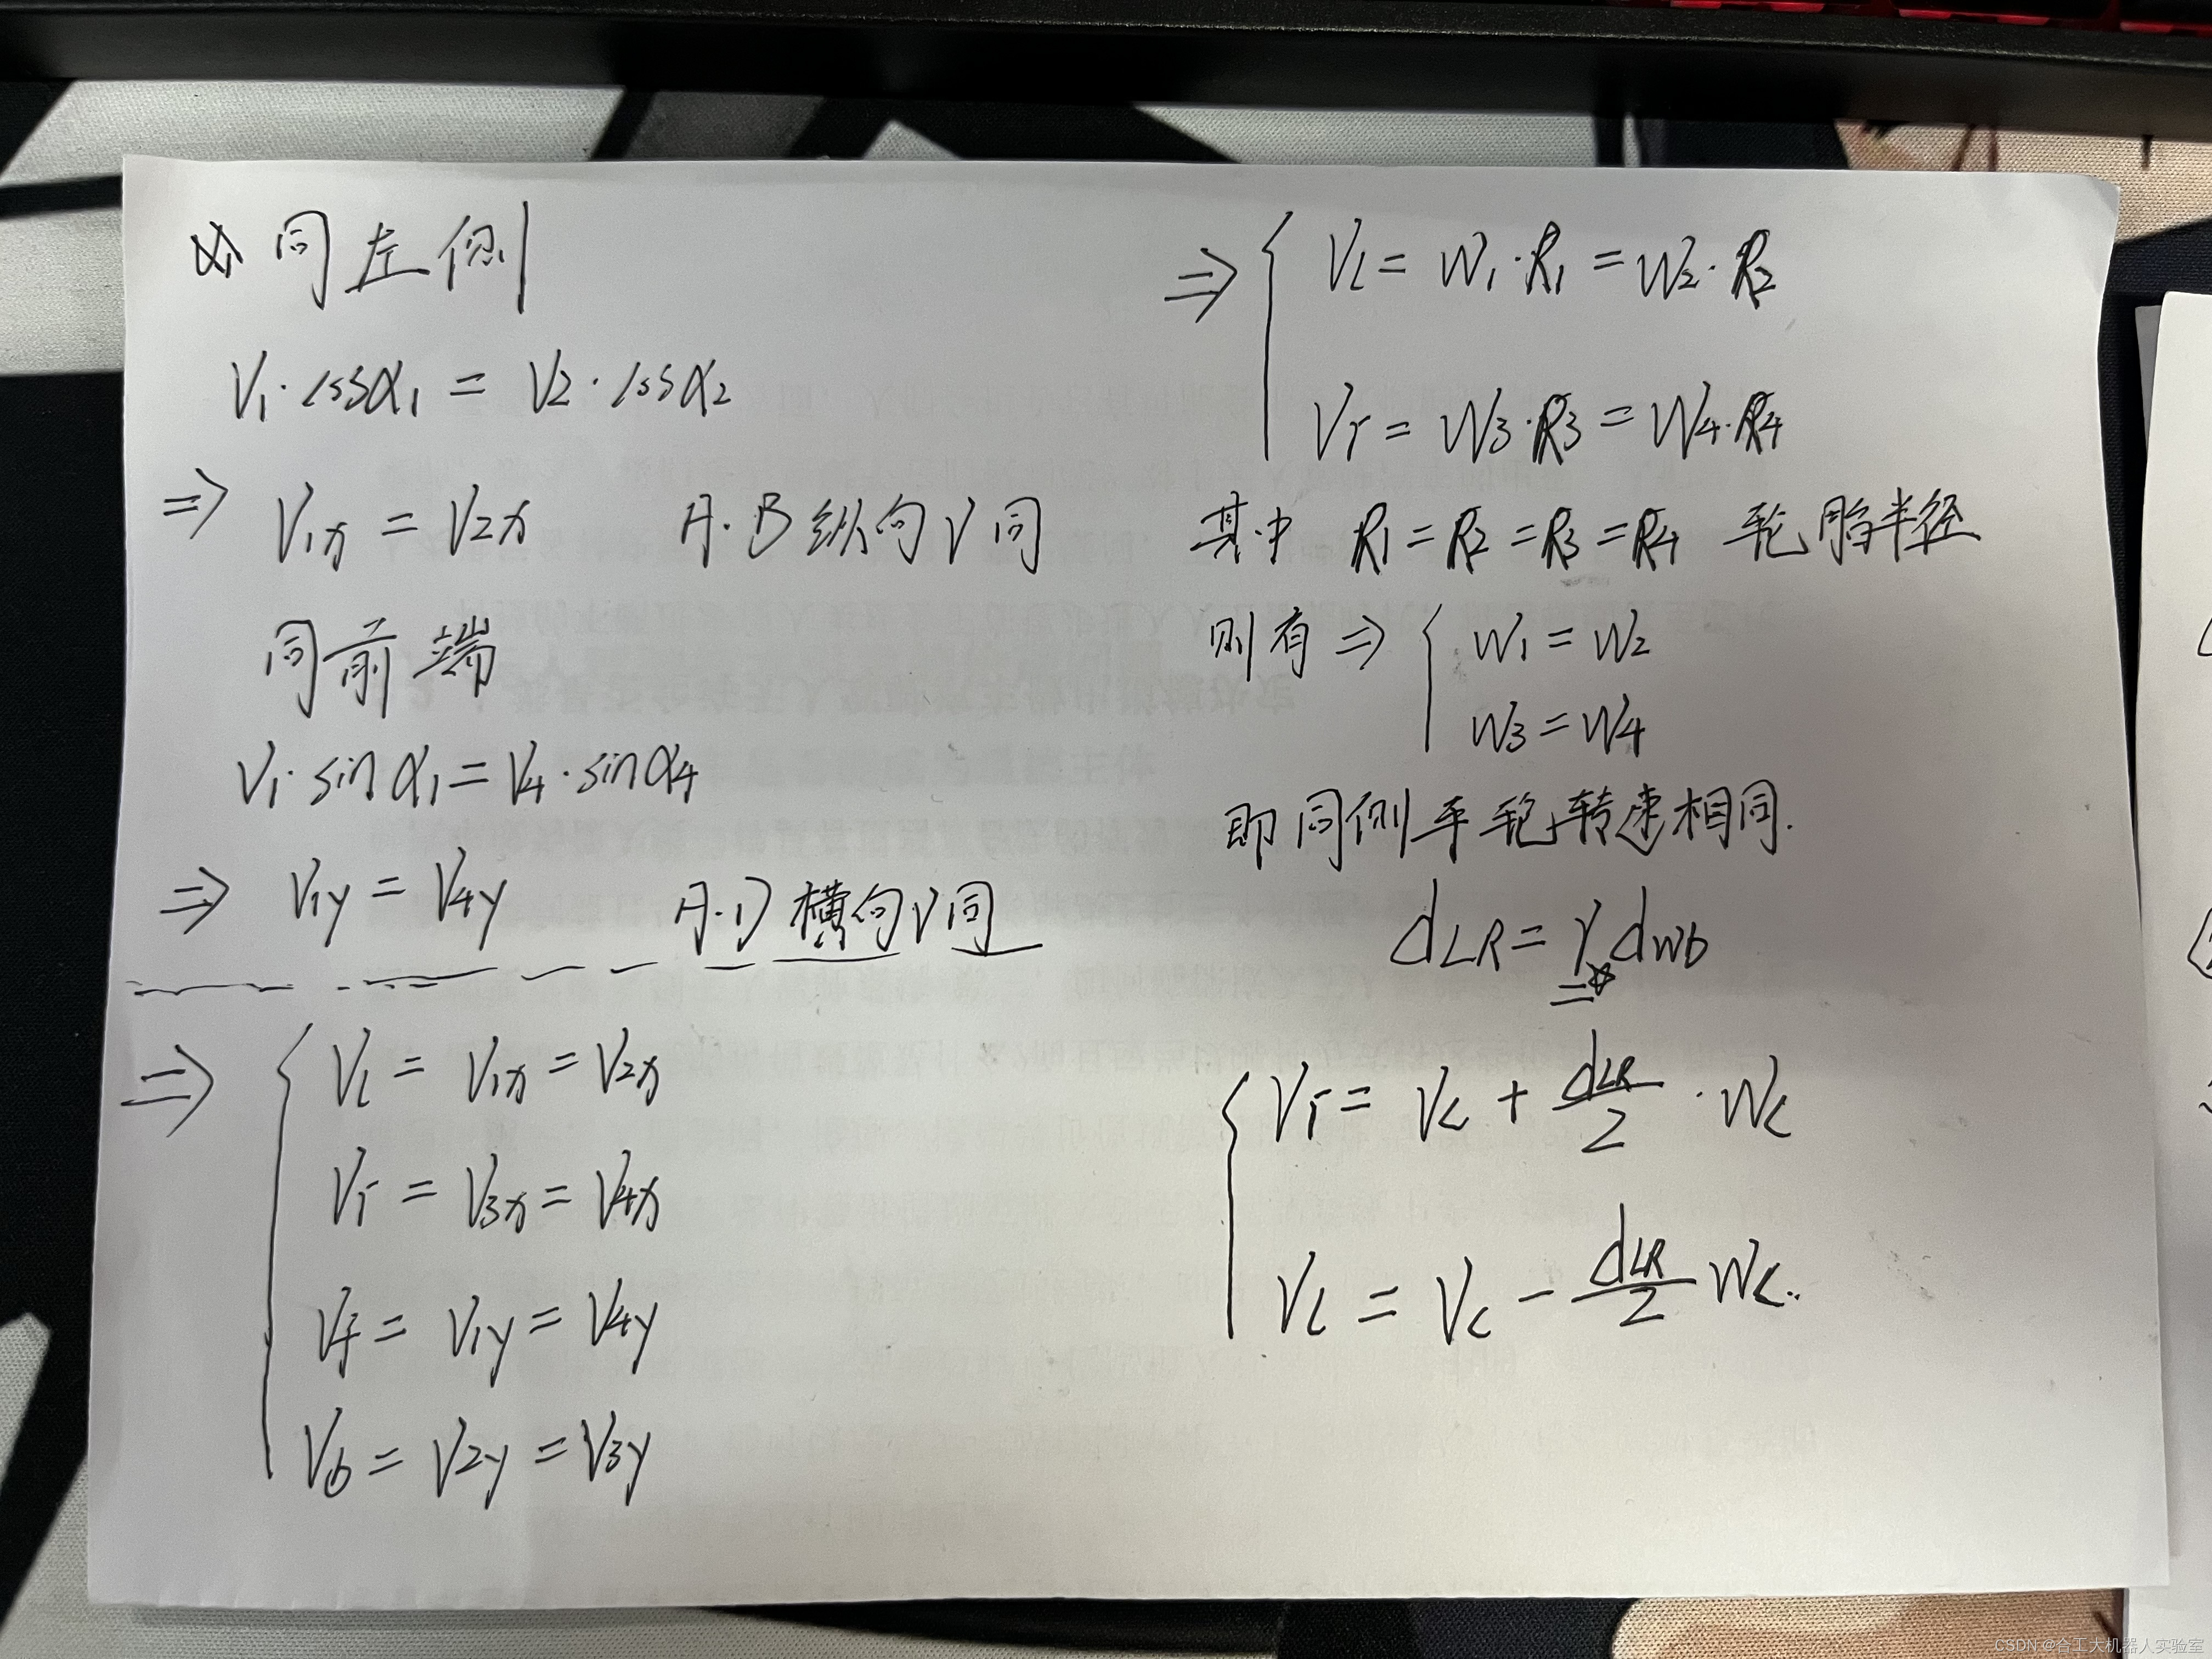 同左侧
V1·cosα1 = V2·cosα2
⇒ V1x = V2x A·B纵向V同
同前端
V1·sinα1 = V4·sinα4
⇒ V1y = V4y A·D横向V同
⇒ { Vl = V1x = V2x
Vr = V3x = V4x
Vf = V1y = V4y
Vb = V2y = V3y
⇒ { Vl = W1·R1 = W2·R2
Vr = W3·R3 = W4·R4
其中 R1 = R2 = R3 = R4 轮胎半径
则有 ⇒ { W1 = W2
W3 = W4
即同侧车轮转速相同.
dLR = γ dwb
{ Vr = Vc + dLR/2 · Wc
Vl = Vc - dLR/2 Wc.
CSDN @合工大机器人实验室